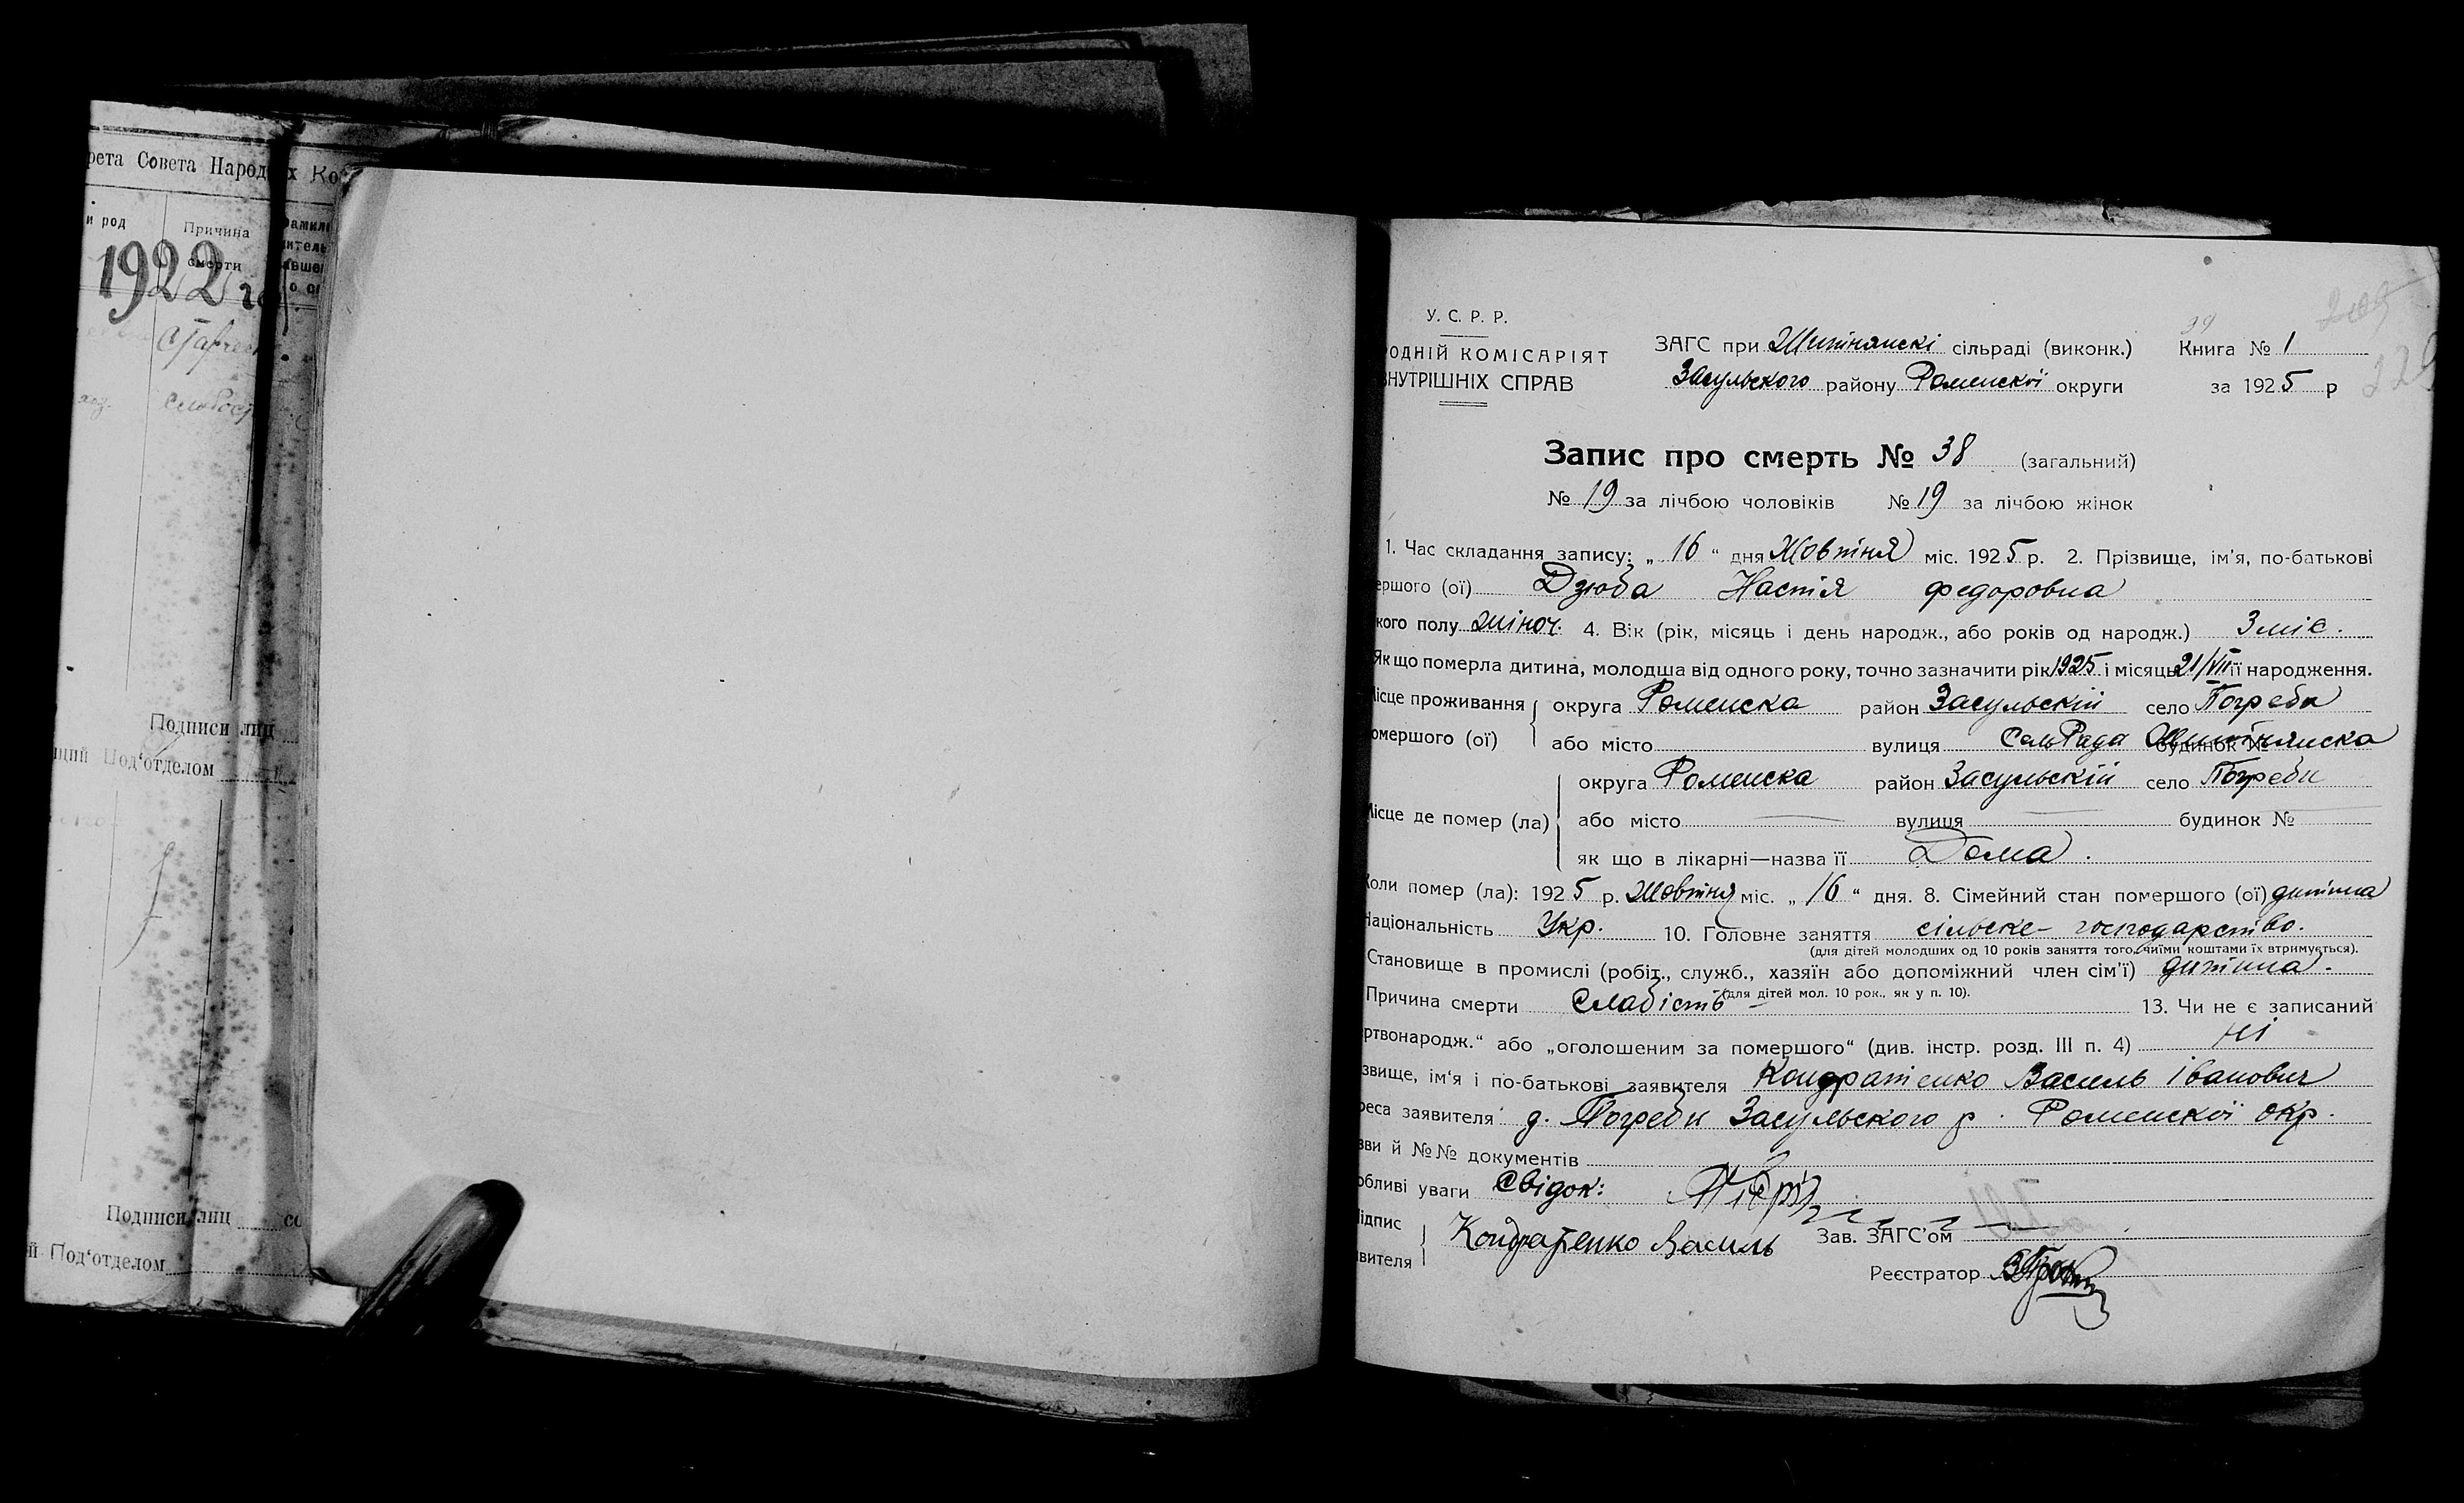 рета Совета Народ х Ко
и род
Причина
смерти
1922 го
Подписи лиц
щий Под‘отделом
Подписи лиц со
й Под‘отделом
У. С. Р. Р.
ОДНІЙ КОМІСАРІЯТ
НУТРІШНІХ СПРАВ
ЗАГС при Шитнянскі сільраді (виконк.) Книга № 1
Засульского району Роменскої округи за 1925 р
Запис про смерть № 38 (загальний)
№ 19 за лічбою чоловіків № 19 за лічбою жінок
1. Час складання запису: „ 16 “ дня Жовтня міс. 1925 р. 2. Прізвище, ім’я, по-батькові
ершого (ої) Дзюба Настія федоровна
кого полу жіноч. 4. Вік (рік, місяць і день народж., або років од народж.) 3 міс.
Якщо померла дитина, молодша від одного року, точно зазначити рік 1925 і місяць 21/VII її народження.
ісце проживання округа Роменска район Засульскій село Погреби
омершого (ої) або місто вулиця СельРада будинок №
округа Роменска район Засульскій село Погреби
ісце де помер (ла) або місто вулиця будинок №
як що в лікарні—назва її Дома.
Коли помер (ла): 1925 р. Жовтня міс. „ 16 “ дня. 8. Сімейний стан помершого (ої) дитина
Національність Укр. 10. Головне заняття сільске- господарство.
(для дітей молодших од 10 років заняття того, чиїми коштами їх втримується).
Становище в промислі (робіт., служб., хазяїн або допоміжний член сім’ї) дитина.
(для дітей мол. 10 рок., як у п. 10).
Причина смерти Слабість 13. Чи не є записаний
ртвонародж.“ або „оголошеним за помершого“ (див. інстр. розд. III п. 4) ні
звище, ім‘я і по-батькові заявителя Кондратенко Василь Іванович
реса заявителя д. Погреби Засульского р. Роменскої окр.
зви й №№ документів
обливі уваги Свідок:
ідпис
Кондратенко Василь Зав. ЗАГС’ом
явителя
Реєстратор